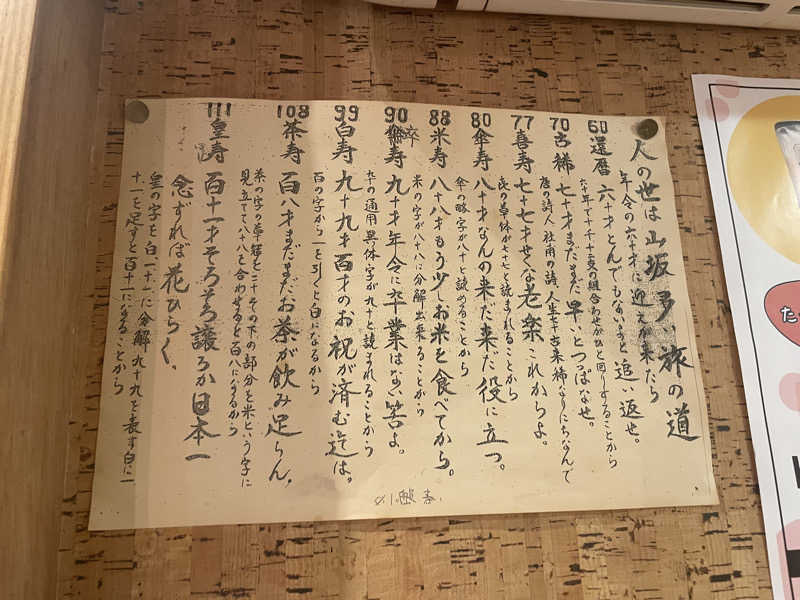 人の世は山坂多い旅の道
年令の六十才に迎えが来たら
60
還暦 六十才とんでもないよと追い返せ。
六十年で十干十二支の組合わせがひと回りすることから
70
古稀 七十才まだまだ早いとつっぱなせ。
唐の詩人杜甫の詩人生七十古来稀なりにちなんで
77
喜寿 七十七才せくな老楽これからよ。
㐂の草体が七十七と読まれることから
80
傘寿 八十才なんの来だ来だ役に立つ。
傘の略字が八十と読めることから
88
米寿 八十八才もう少しお米を食べてから。
米の字が八十八に分解出来ることから
90
卒寿 九十才年令に卒業はない筈よ。
九十の通用異体字が九十と読まれることから
99
白寿 九十九才百才のお祝が済む迄は。
百の字から一を引くと白になるから
108
茶寿 百八才まだまだお茶が飲み足らん。
茶の字の草冠を二十その下の部分を米という字に
見立てて八十八を合わせると百八になるから
111
皇寿 百十一才そろそろ譲ろか日本一
念ずれば花ひらく。
皇の字を白、一十一に分解九十九を表す白に一
十、一を足すと百十一になることから
た